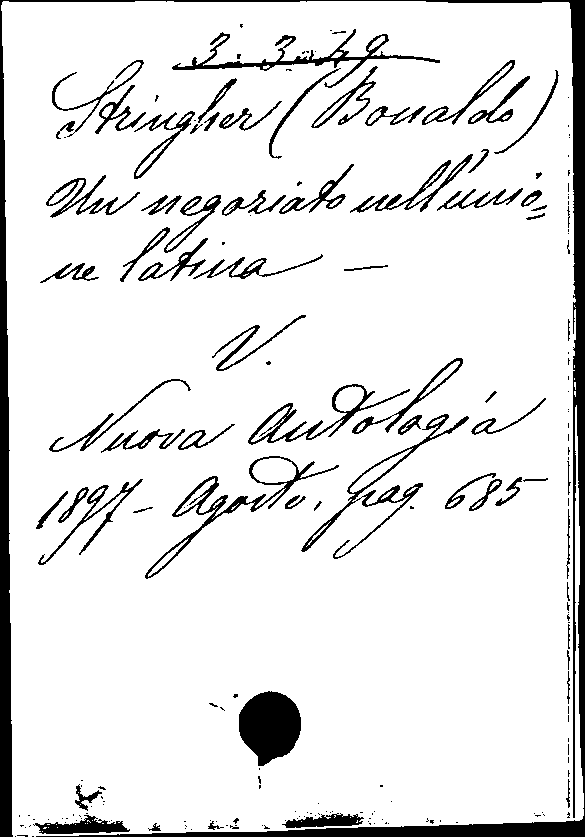 3. 3. 49
Stringher (Bonaldo)
Un negoziato nell'unio=
ne latina —
V.
Nuova Antologia
1897 - Agosto, pag. 685